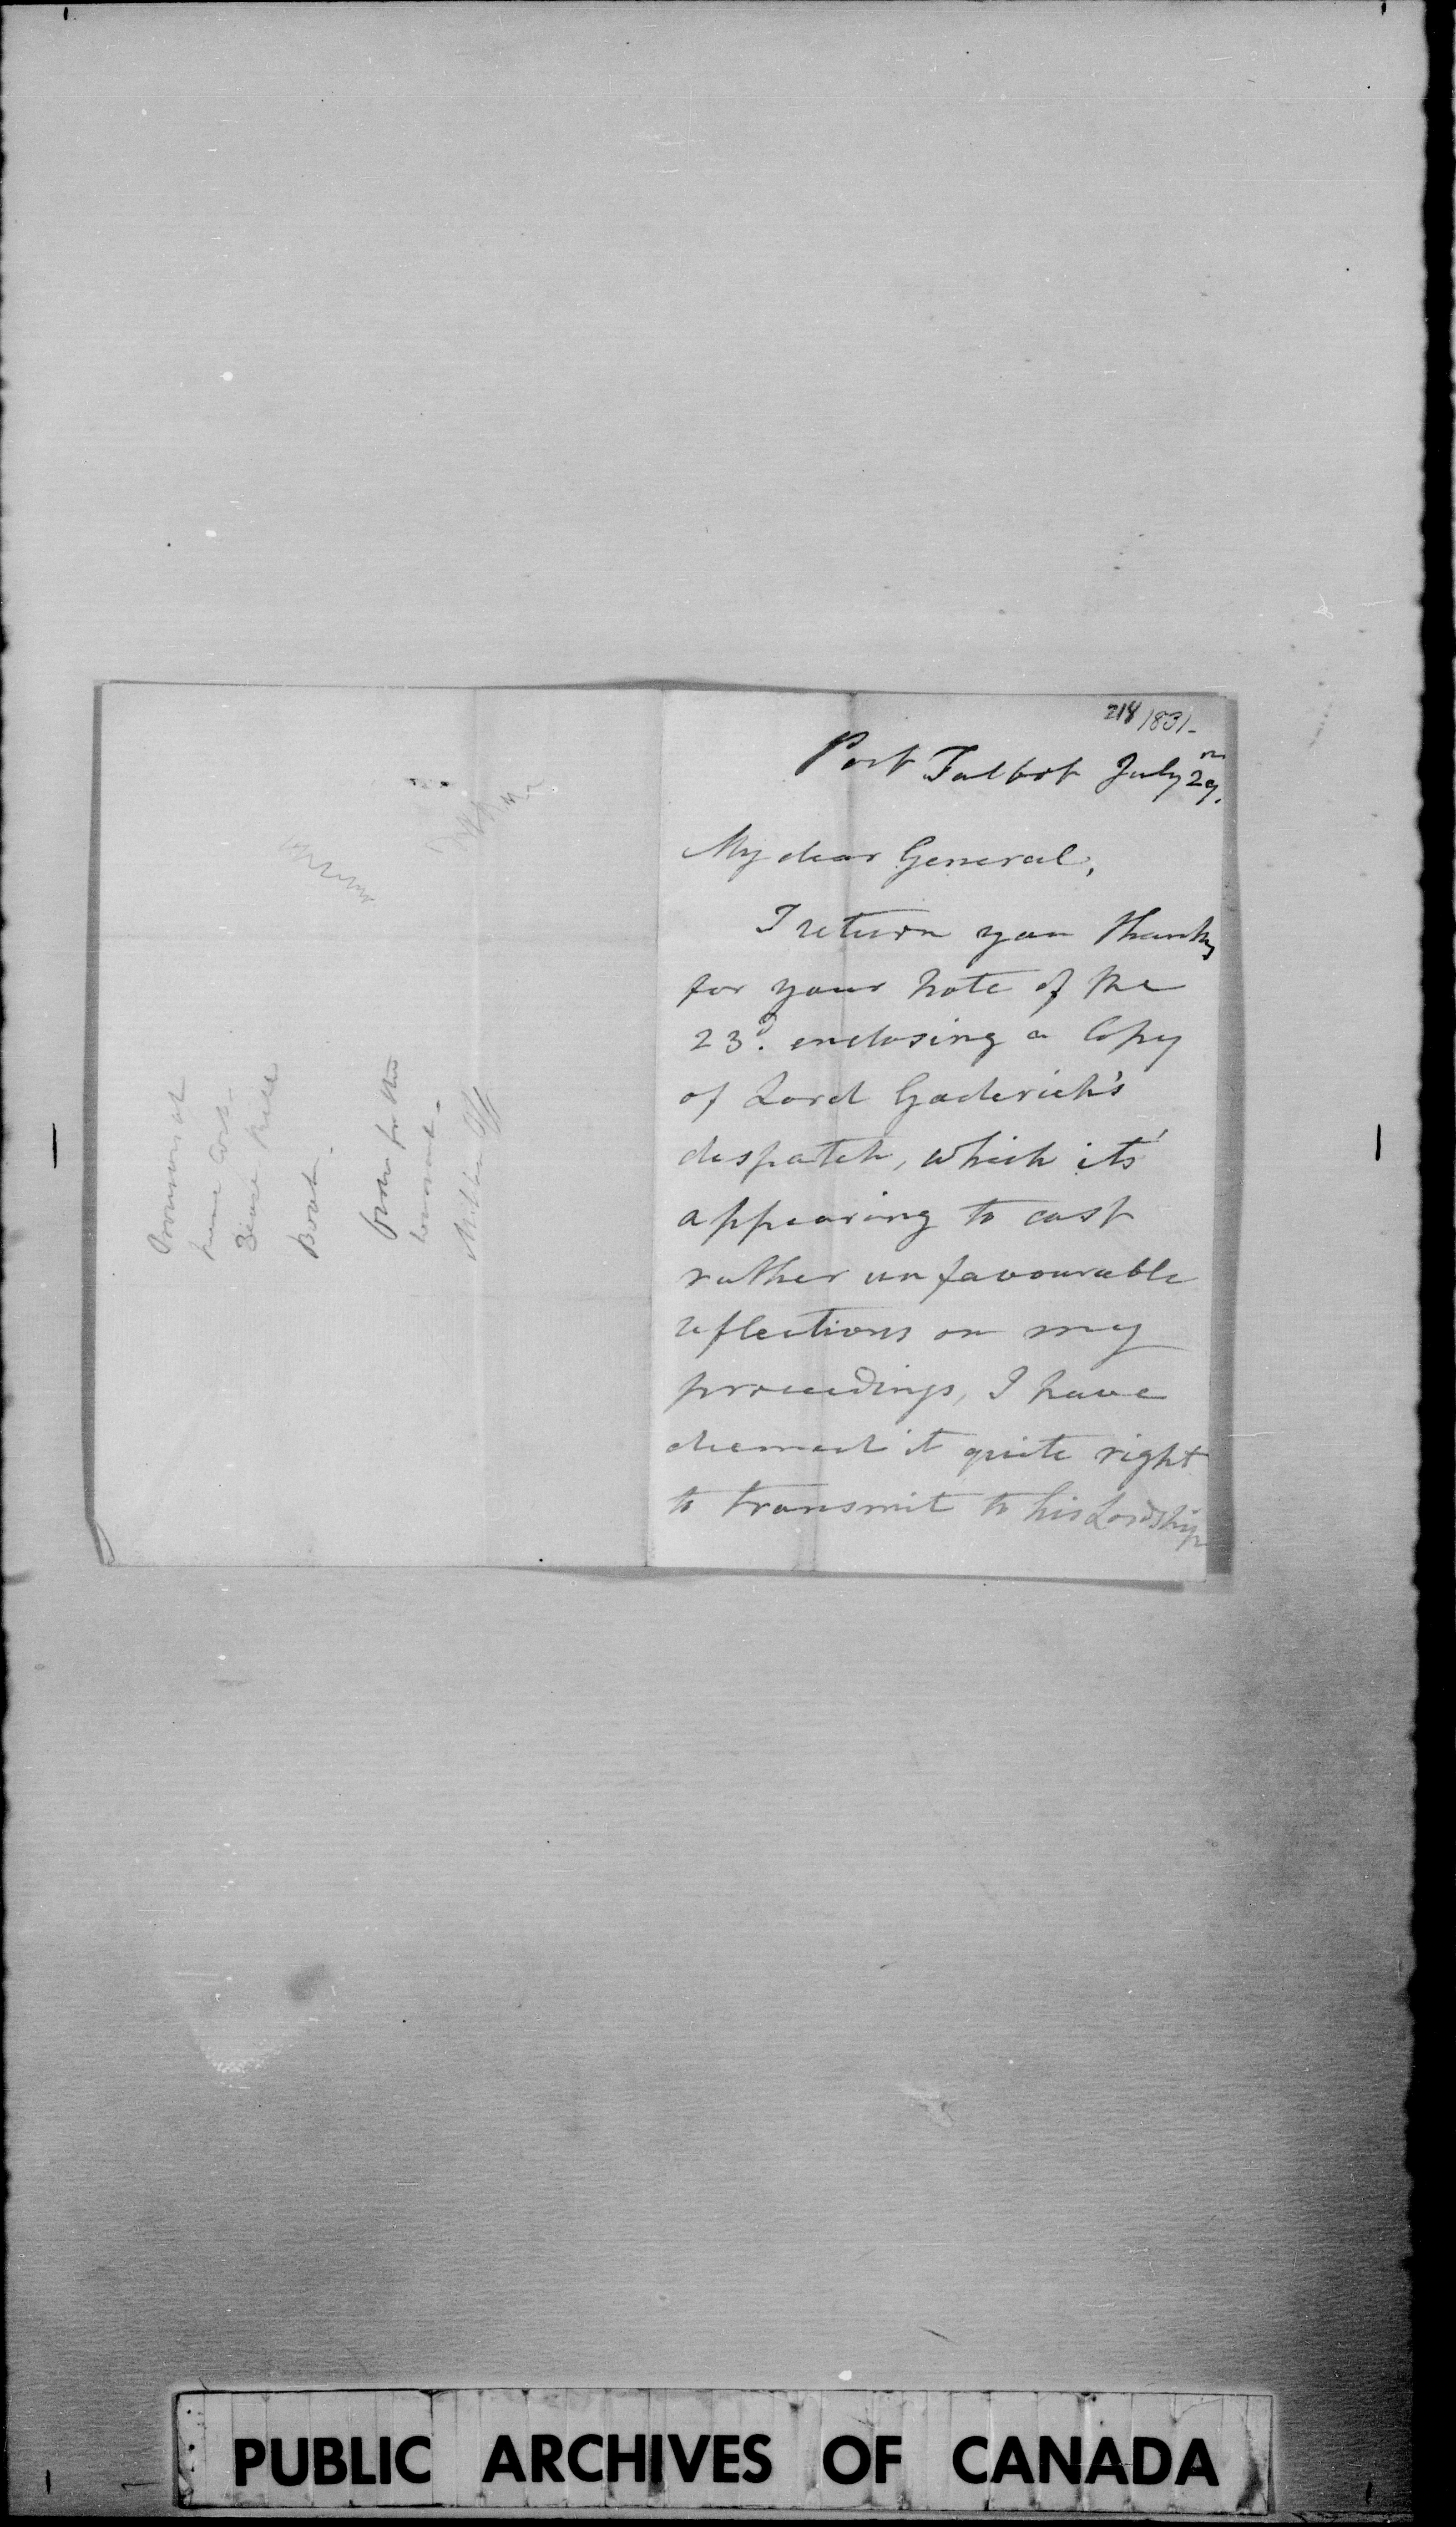 218 1831-
Port Talbot July 29.
My dear General,
I return you thanks
for your note of the
23d. enclosing a Copy
of Lord Goderich's
despatch, which its'
appearing to cast
rather unfavourable
reflections on my
proceedings, I have
deemed it quite right
to transmit to his Lordship
Boat.
PUBLIC ARCHIVES OF CANADA